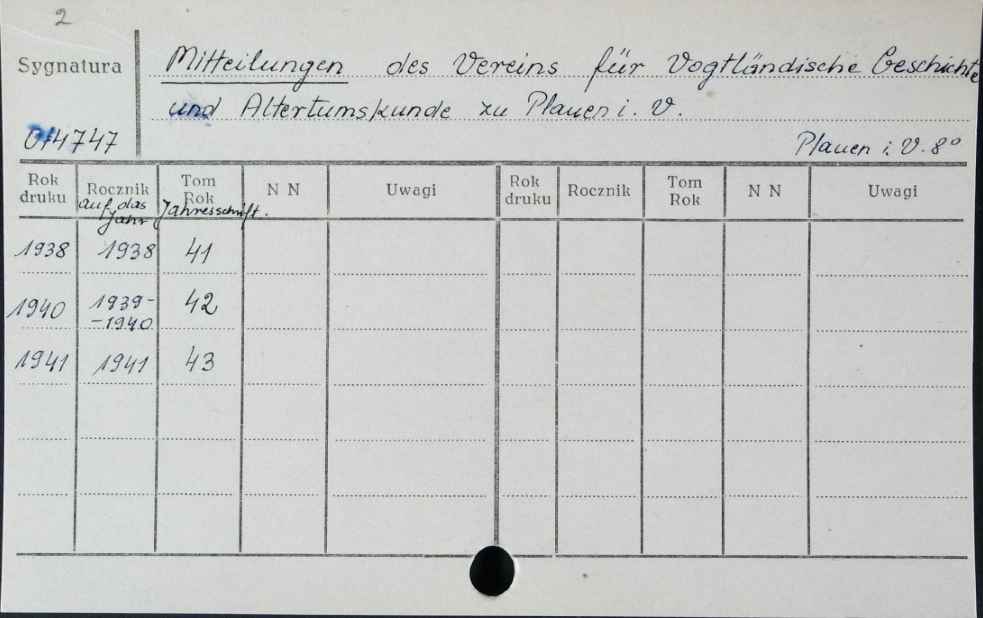 2
Sygnatura
Mitteilungen des Vereins für Vogtländische Geschichte
und Altertumskunde zu Plauen i. V.
4747
Plauen i. V. 8º
Rok druku Rocznik Tom Rok N N Uwagi Rok druku Rocznik Tom Rok N N Uwagi
auf das Jahr Jahresschrift.
1938 1938 41
1940 1939-
-1940 42
1941 1941 43